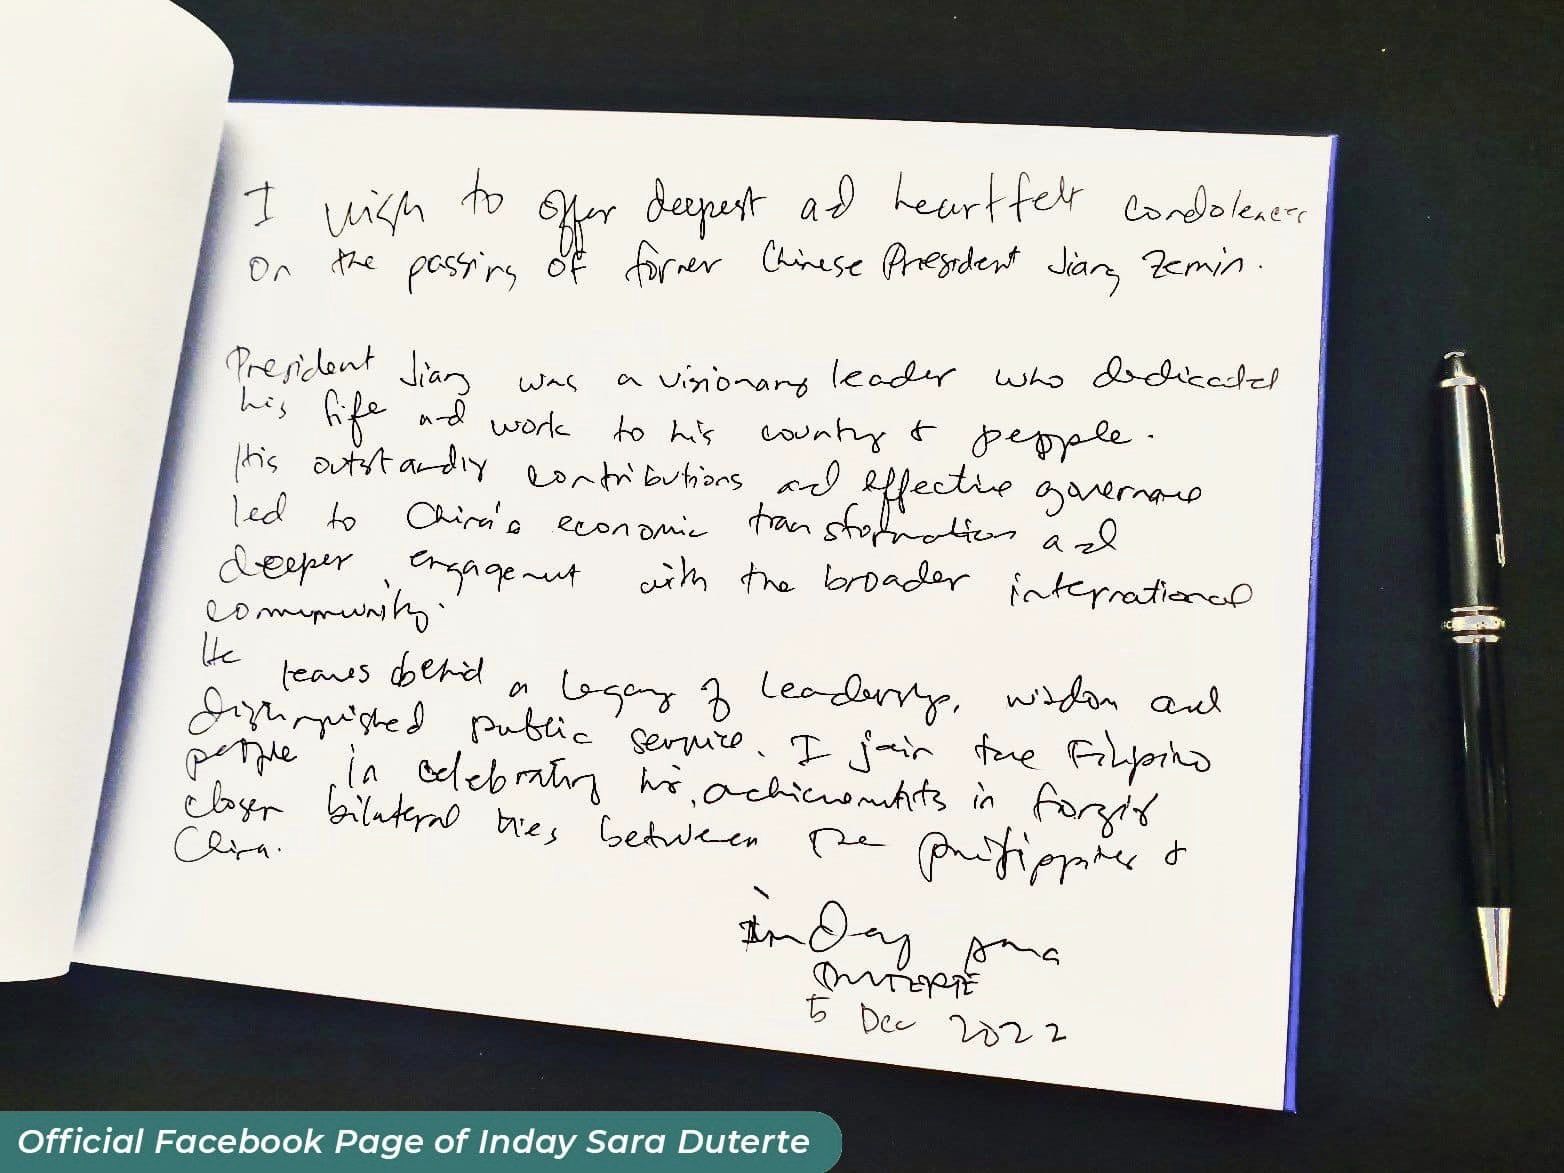 I wish to offer deepest and heartfelt condolences
on the passing of former Chinese President Jiang Zemin.
President Jiang was a visionary leader who dedicated
his life and work to his country & people.
His outstanding contributions and effective governance
led to China's economic transformation and
deeper engagement with the broader international
community.
He leaves behind a legacy of leadership, wisdom and
distinguished public service. I join the Filipino
people in celebrating his achievements in forging
closer bilateral ties between the Philippines &
China.
Inday Sara
DUTERTE
5 Dec 2022
Official Facebook Page of Inday Sara Duterte